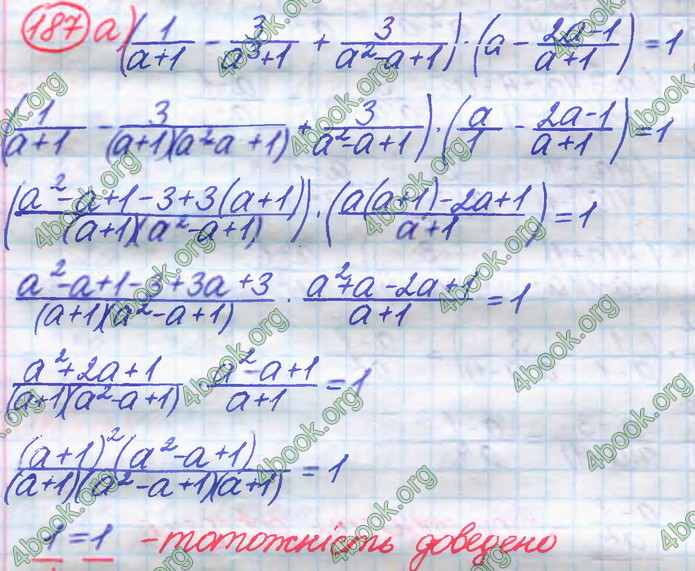 187 а) (1/(a+1) - 3/(a³+1) + 3/(a²-a+1)) · (a - (2a-1)/(a+1)) = 1
(1/(a+1) - 3/((a+1)(a²-a+1)) + 3/(a²-a+1)) · (a/1 - (2a-1)/(a+1)) = 1
((a²-a+1-3+3(a+1))/((a+1)(a²-a+1))) · ((a(a+1)-2a+1)/(a+1)) = 1
(a²-a+1-3+3a+3)/((a+1)(a²-a+1)) · (a²+a-2a+1)/(a+1) = 1
(a²+2a+1)/((a+1)(a²-a+1)) · (a²-a+1)/(a+1) = 1
((a+1)²(a²-a+1))/((a+1)(a²-a+1)(a+1)) = 1
1 = 1 - тотожність доведено
4book.org